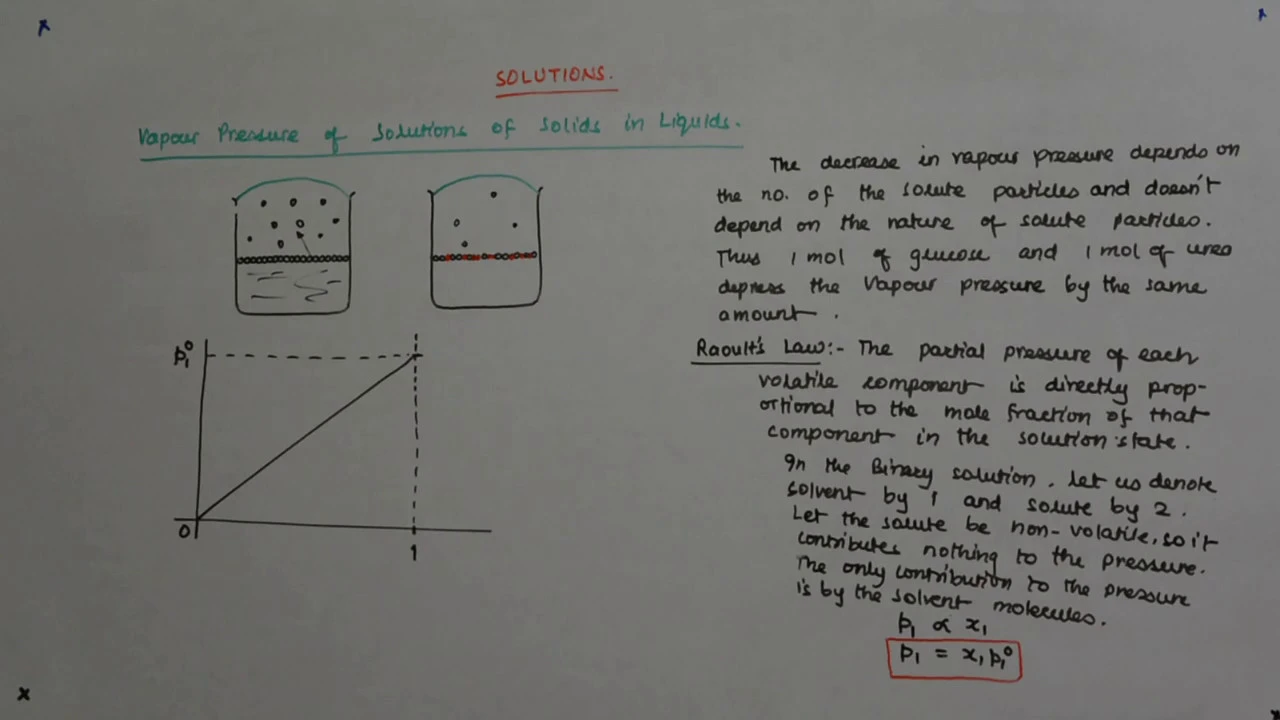 SOLUTIONS.
Vapour Pressure of Solutions of Solids in Liquids.
The decrease in vapour pressure depends on
the no. of the solute particles and doesn't
depend on the nature of solute particles.
Thus 1 mol of glucose and 1 mol of urea
depress the Vapour pressure by the same
amount.
Raoult's Law:- The partial pressure of each
volatile component is directly prop-
ortional to the mole fraction of that
component in the solution state.
In the Binary solution, let us denote
solvent by 1 and solute by 2.
Let the solute be non-volatile, so it
contributes nothing to the pressure.
The only contribution to the pressure
is by the solvent molecules.
p₁ ∝ x₁
p₁ = x₁ p₁⁰
p₁⁰
0
1